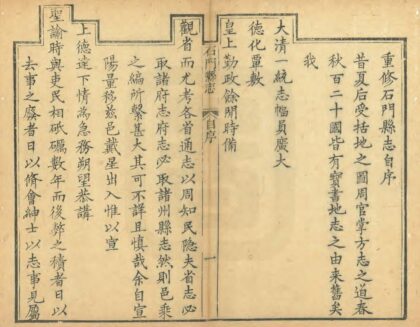 重修石門縣志自序
昔夏后受括地之圖周官掌方志之道春
秋百二十國皆有寶書地志之由来舊矣
我
大清一統志幅員廣大
德化覃敷
皇上勤政餘閒時備
石門縣志
自序
一
觀省而尤考各省通志以周知民隱夫省志必
取諸府志府志必取諸州縣志然則邑乘
之編所繫甚大其可不詳且慎哉余自宣
陽量移茲邑戴星出入惟以宣
上德達下情為急務朔望恭講
聖諭時與吏民相砥礪數年而後弊之積者日以
去事之廢者日以脩會紳士以志事見屬